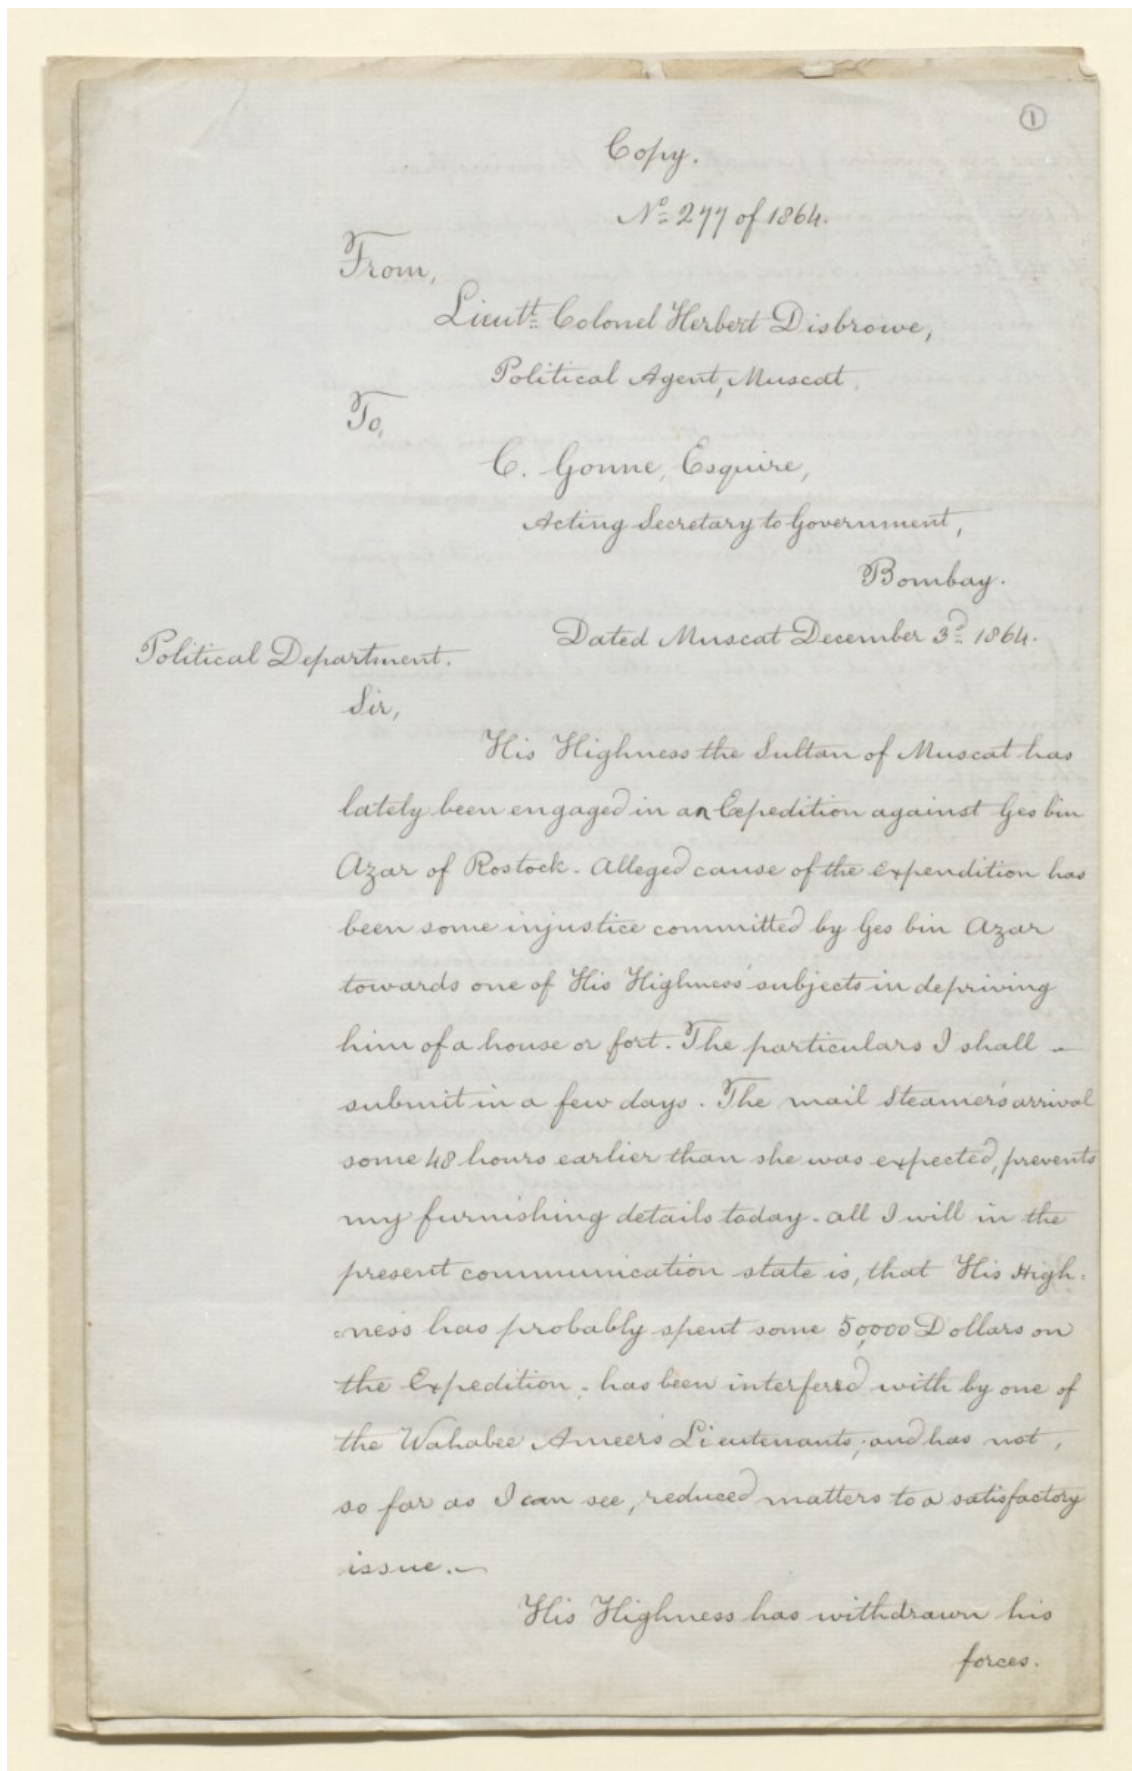 1
Copy.
No. 277 of 1864.
From,
Lieutt. Colonel Herbert Disbrowe,
Political Agent, Muscat.
To,
C. Gonne, Esquire,
Acting Secretary to Government,
Bombay.
Dated Muscat December 3d. 1864.
Political Department.
Sir,
His Highness the Sultan of Muscat has
lately been engaged in an Expedition against Ges bin
Azar of Rostock. Alleged cause of the expendition has
been some injustice committed by Ges bin Azar
towards one of His Highness' subjects in depriving
him of a house or fort. The particulars I shall -
submit in a few days. The mail Steamer's arrival
some 48 hours earlier than she was expected, prevents
my furnishing details today. All I will in the
present communication state is, that His High=
=ness has probably spent some 50,000 Dollars on
the Expedition, - has been interfered with by one of
the Wahabee Ameers Lieutenants; and has not,
so far as I can see, reduced matters to a satisfactory
issue. -
His Highness has withdrawn his
forces.